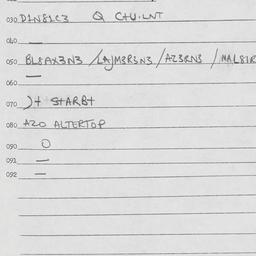 030 D1N81C3 Q C+U.LNT
040 —
050 BL8AX3N3 /LAJM3R3N3 /AZ3RN3 /MAL81R
060 —
070 )+ STARB+
080 AZO ALTERTOP
090 O
091 —
092 —